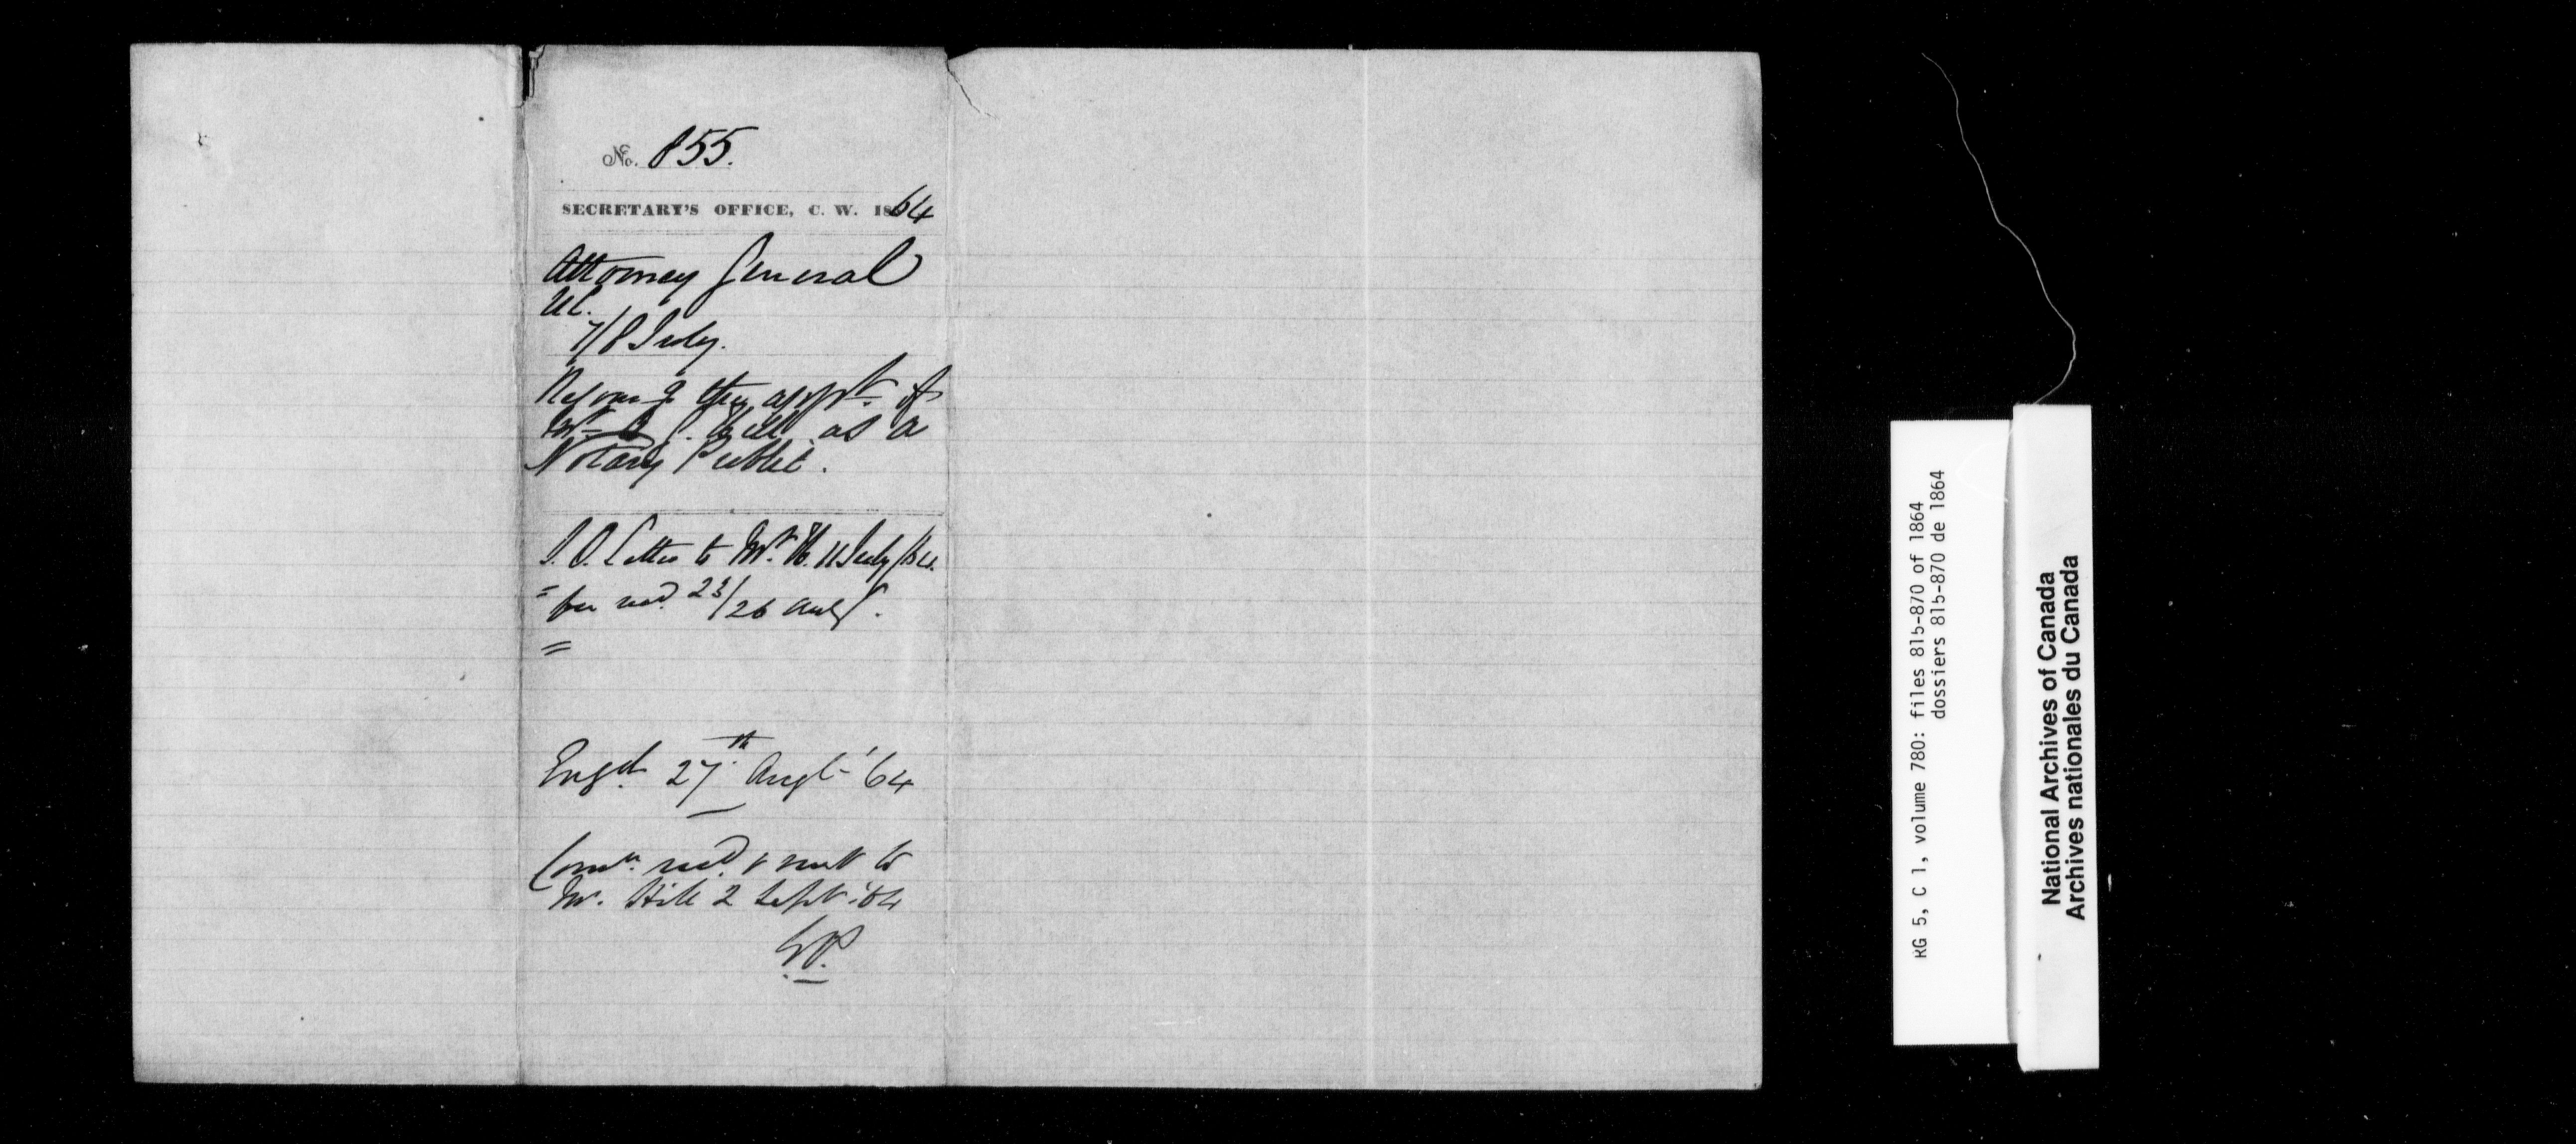 No. 855.
SECRETARY'S OFFICE, C. W. 1864
Attorney General
U.C.
7/8 July.
the appt. of
Mr. Hill as a
Notary Public.
S. O. Letter to Mr. H. 11 July /64.
" fee recd. 23/26 Augt.
"
Engd. 27th Augt. '64
Comn. recd. & sent to
Mr. Hill 2 Sept. '64
RG 5, C 1, volume 780: files 815-870 of 1864
dossiers 815-870 de 1864
National Archives of Canada
Archives nationales du Canada